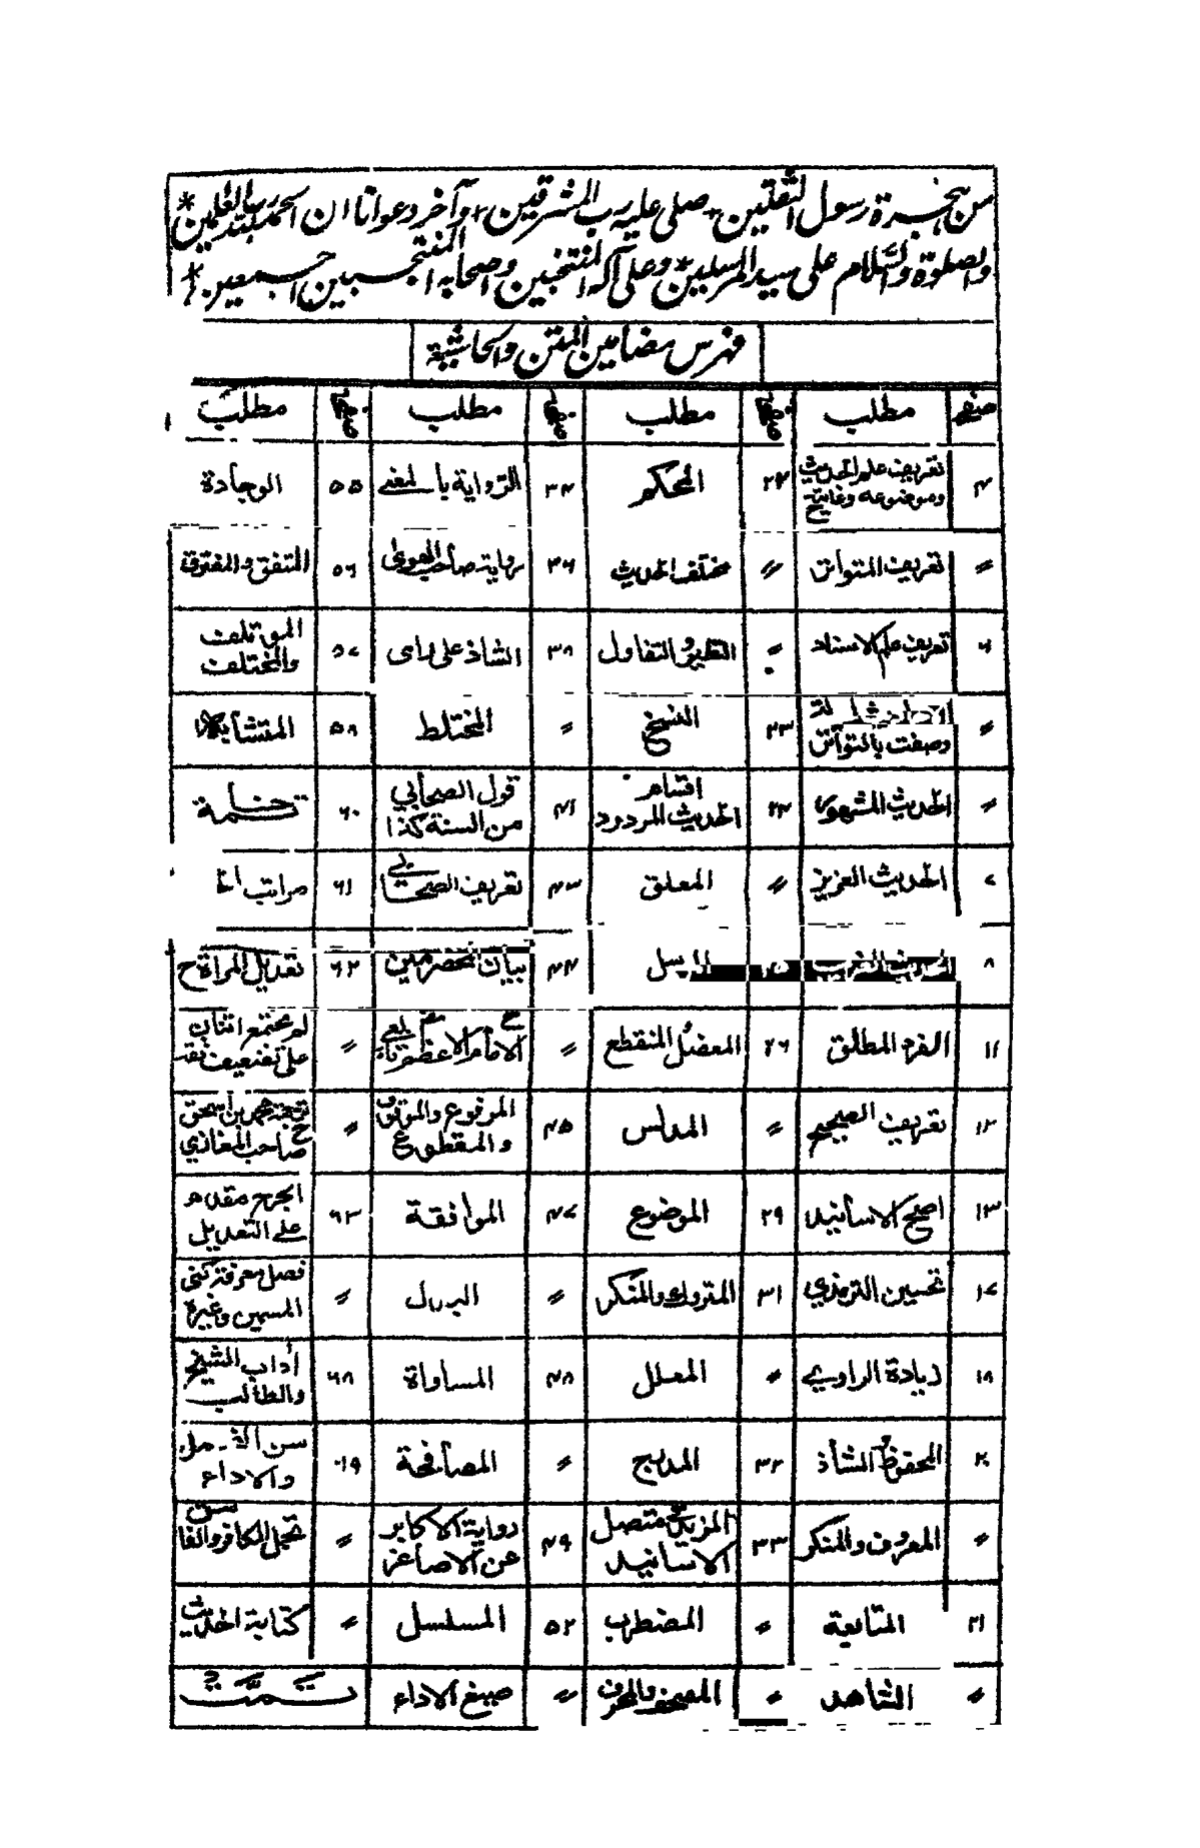 من هجرة رسول الثقلين * صلى عليه رب المشرقين * وآخر دعوانا ان الحمد لله رب العلمين *
والصلوة والسلام على سيد المرسلين * وعلى آله المنتخبين واصحابه المنتجبين اجمعين *
فهرس مضامين المتن والحاشية
صفحه مطلب صفحه مطلب صفحه مطلب صفحه مطلب
۴ تعريف علم الحديث وموضوعه وغايته ح ۲۲ المحكم ۳۴ الرواية بالمعنى ۵۵ الوجادة
〃 تعريف المتواتر 〃 مختلف الحديث ۳۶ رواية صاحب الهوى ۵۶ المتفق والمفترق
۶ تعريف علم الاسناد 〃 التطبيق والتفاول ۳۸ الشاذ على راى ۵۷ المؤتلف والمختلف
〃 وصفت بالتواتر ۲۳ النسخ 〃 المختلط ۵۸ المتشابه
〃 الحديث المشهور ۲۴ اقسام الحديث المردود ۴۱ قول الصحابي من السنة كذا ۶۰ خاتمة
۷ الحديث العزيز 〃 المعلق ۴۳ تعريف الصحابي ۶۱ مراتب
۸ الحديث الغريب ۲۵ المرسل ۴۴ بيان المخضرمين ۶۲ تعديل المرأة ح
۱۱ الفرد المطلق ۲۶ المعضل المنقطع 〃 الامام الاعظم تابعي ح 〃 لم يجتمع اثنان على تضعيف ثقة
۱۲ تعريف الصحيح 〃 المدلس ۴۵ المرفوع والموقوف والمقطوع 〃 ترجمة محمد بن اسحق صاحب المغازي ح
۱۳ اصح الاسانيد ۲۹ الموضوع ۴۷ الموافقة ۶۳ الجرح مقدم على التعديل
۱۷ تحسين الترمذي ۳۱ المتروك والمنكر 〃 البدل 〃 فصل معرفة كنى المسمين وغيره
۱۸ زيادة الراوي 〃 المعلل ۴۸ المساواة ۶۸ أداب الشيخ والطالب
۲۰ المحفوظ والشاذ ۳۲ المدرج 〃 المصافحة ۶۹ سن التحمل والاداء
〃 المعروف والمنكر ۳۳ المزيد في متصل الاسانيد ۴۹ رواية الاكابر عن الاصاغر 〃 تحمل الكافر
۲۱ المتابعة 〃 المضطرب ۵۲ المسلسل 〃 كتابة الحديث
〃 الشاهد 〃 المصحف والمحرف 〃 صيغ الاداء تمت